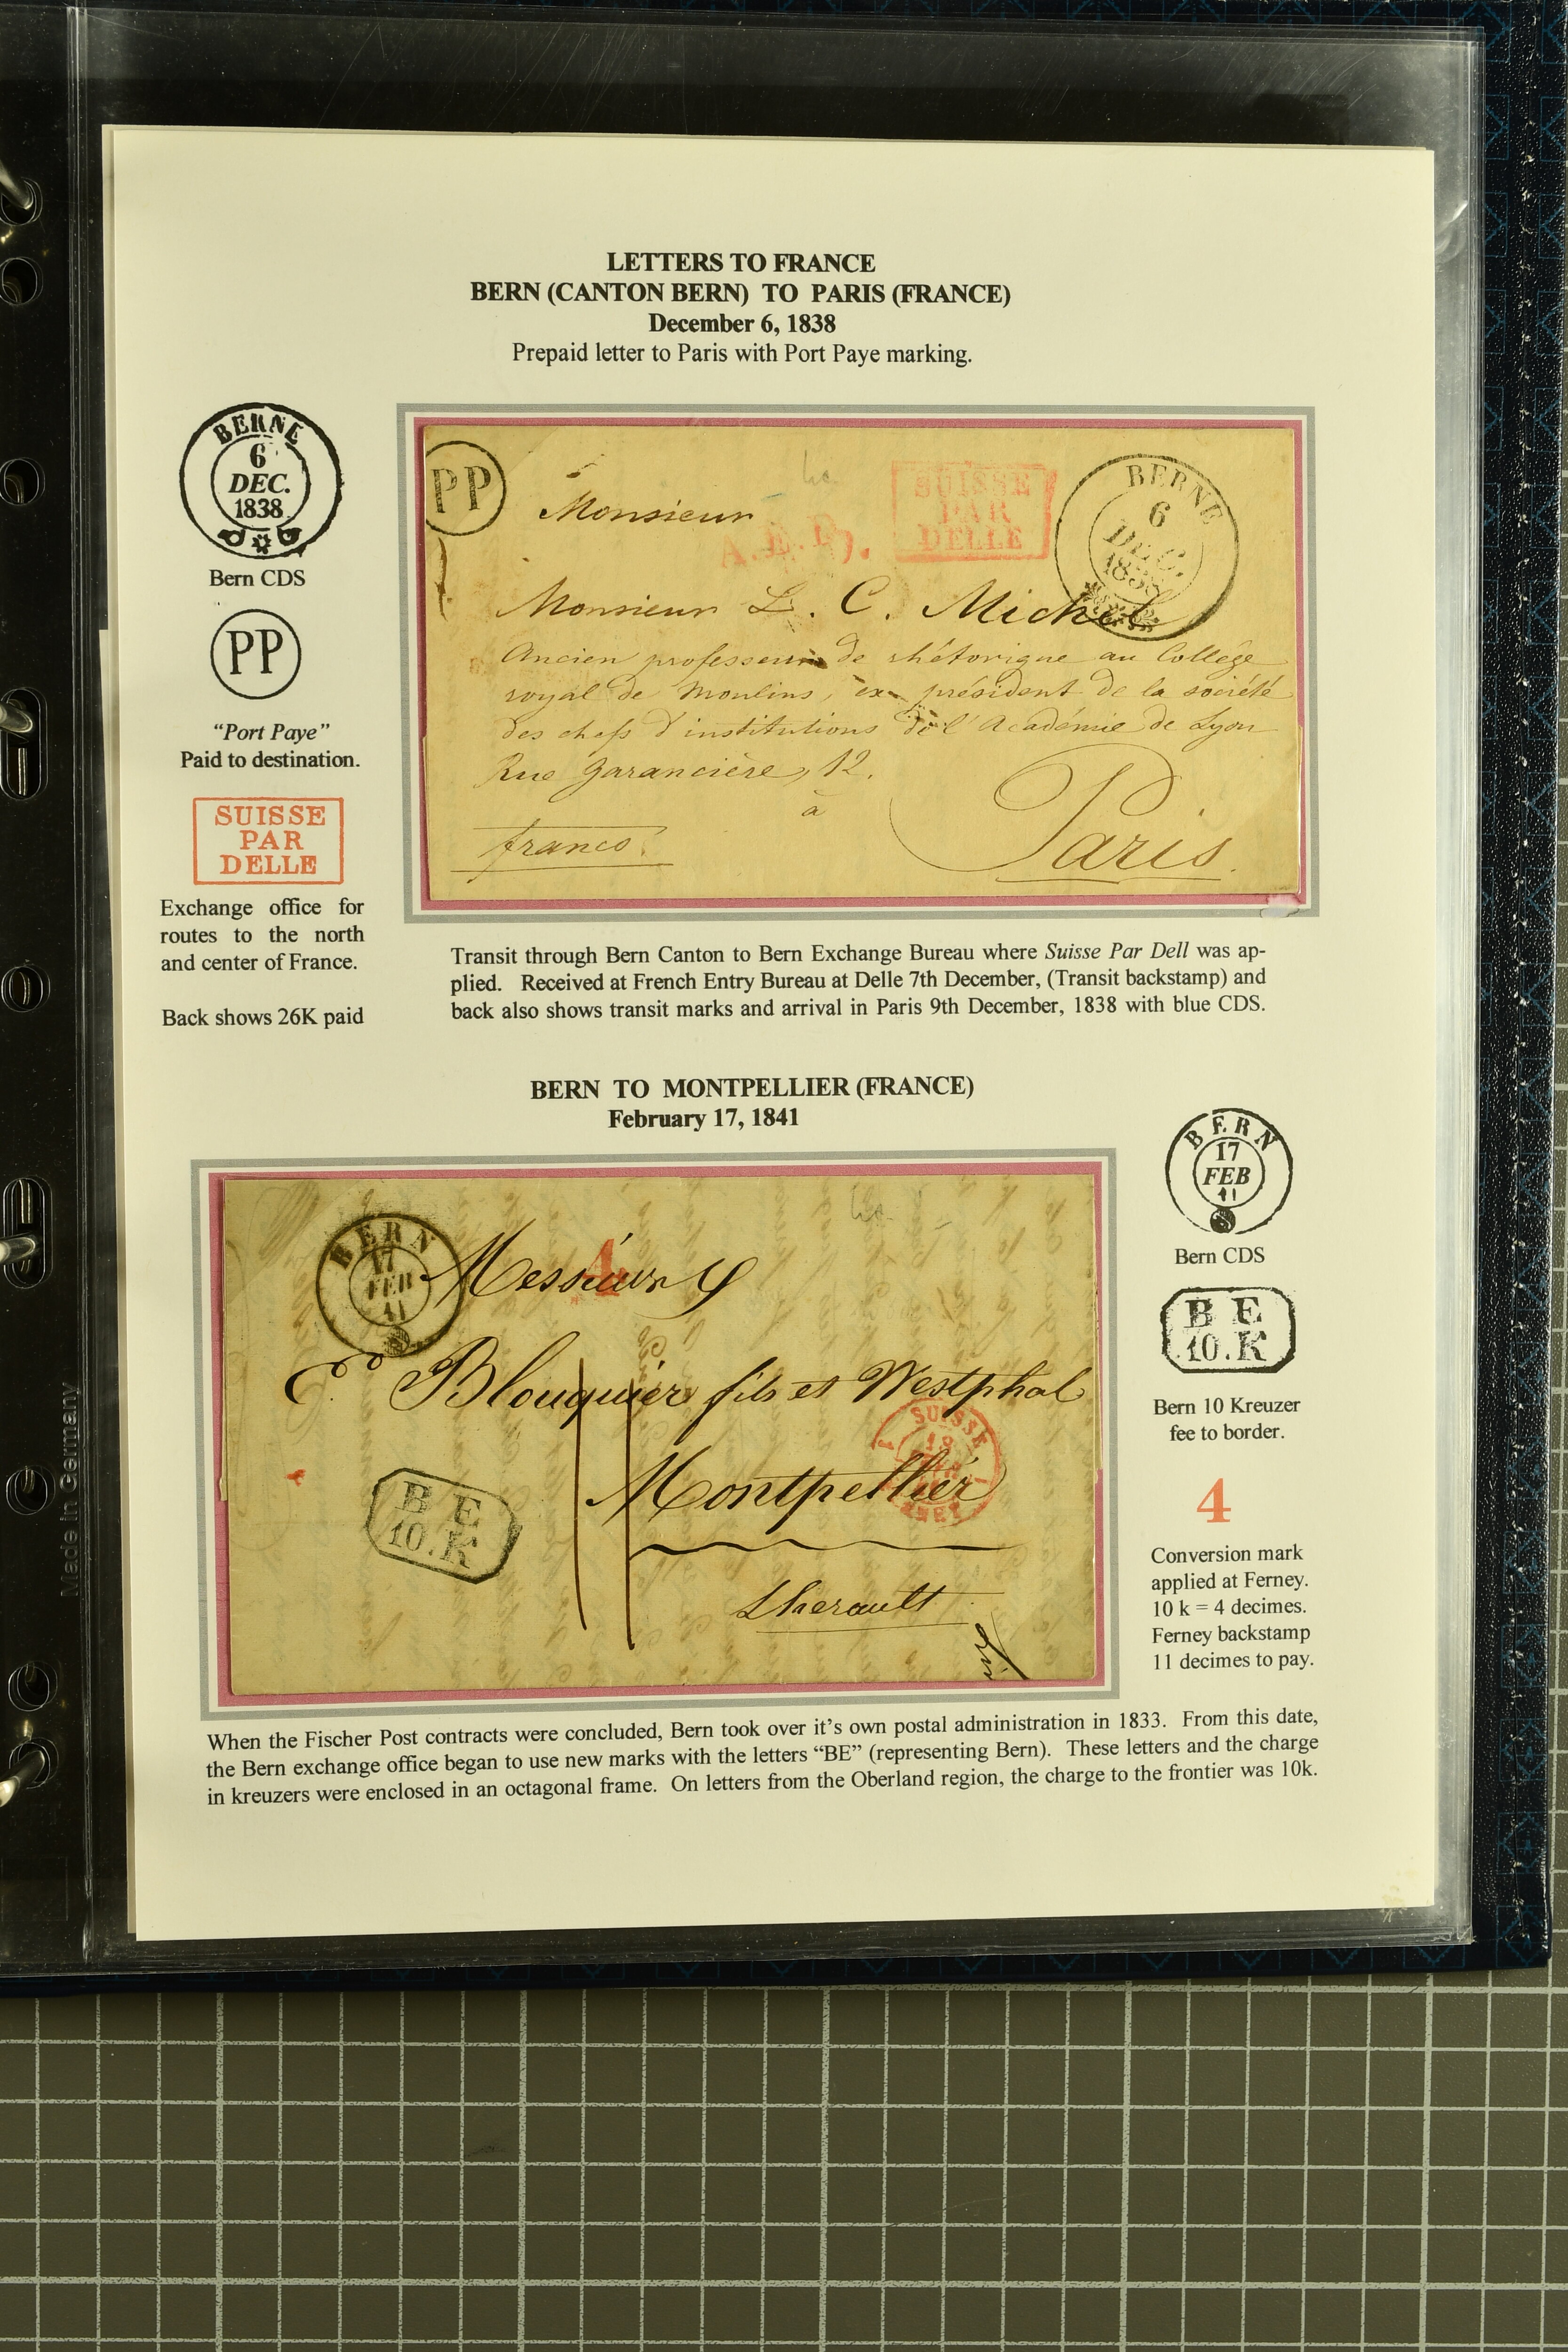 LETTERS TO FRANCE
BERN (CANTON BERN) TO PARIS (FRANCE)
December 6, 1838
Prepaid letter to Paris with Port Paye marking.
BERNE
6
DEC.
1838
Bern CDS
PP
"Port Paye"
Paid to destination.
SUISSE
PAR
DELLE
Exchange office for
routes to the north
and center of France.
Back shows 26K paid
PP
Monsieur
SUISSE
PAR
DELLE
BERNE
6
DEC.
1838
Monsieur L. C. Michel
Ancien professeur de rhétorique au Collège
royal de Moulins, ex-président de la société
des chefs d'institutions de l'Académie de Lyon
Rue Garancière, 12.
à
Paris.
franco.
Transit through Bern Canton to Bern Exchange Bureau where Suisse Par Dell was ap-
plied. Received at French Entry Bureau at Delle 7th December, (Transit backstamp) and
back also shows transit marks and arrival in Paris 9th December, 1838 with blue CDS.
BERN TO MONTPELLIER (FRANCE)
February 17, 1841
BERN
17
FEB
41
4
Messieurs
Blouquier fils et Westphal
SUISSE
Montpellier
B E
10.K
Lherault
BERN
17
FEB
41
Bern CDS
B E
10.K
Bern 10 Kreuzer
fee to border.
4
Conversion mark
applied at Ferney.
10 k = 4 decimes.
Ferney backstamp
11 decimes to pay.
When the Fischer Post contracts were concluded, Bern took over it's own postal administration in 1833. From this date,
the Bern exchange office began to use new marks with the letters "BE" (representing Bern). These letters and the charge
in kreuzers were enclosed in an octagonal frame. On letters from the Oberland region, the charge to the frontier was 10k.
Made in Germany